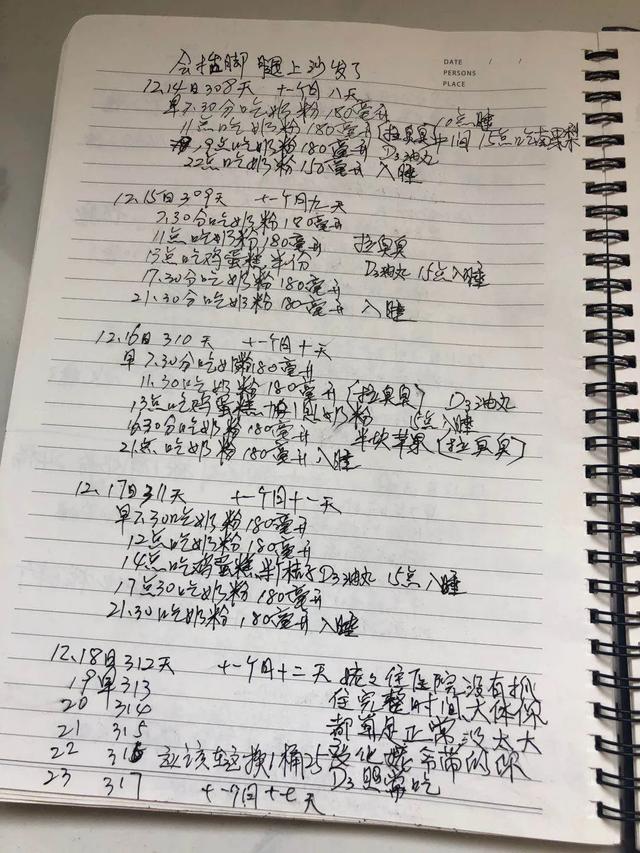 会抬脚腿上沙发了
DATE / /
PERSONS
PLACE
12.14日308天 十一个月八天
早7.30分吃奶粉180毫升 10点睡
11点吃奶粉180毫升(拉臭臭)中间15点吃南果梨
19点吃奶粉180毫升 D3油丸
22点吃奶粉150毫升 入睡
12.15日309天 十一个月九天
7.30分吃奶粉180毫升
11点吃奶粉180毫升 拉臭臭
13点吃鸡蛋糕半份 D3油丸 15点入睡
17.30分吃奶粉180毫升
21.30分吃奶粉180毫升 入睡
12.16日310天 十一个月十天
早7.30分吃奶粉180毫升
11.30吃奶粉180毫升(拉臭臭) D3油丸
13点吃鸡蛋糕加1点奶粉 15点入睡
16.30分吃奶粉180毫升 半块苹果(拉臭臭)
21点吃奶粉180毫升入睡
12.17日311天 十一个月十一天
早7.30吃奶粉180毫升
12点吃奶粉180毫升
14点吃鸡蛋糕 桔子 D3油丸 15点入睡
17点30吃奶粉180毫升
21.30吃奶粉180毫升 入睡
12.18日312天 十一个月十二天 住医院没有抓
19早313 住完整时间大体
20 314 都算是正常没太大
21 315 变化 带的
22 316 应该 换1桶25
23 317 十一个月十七天 D3照常吃